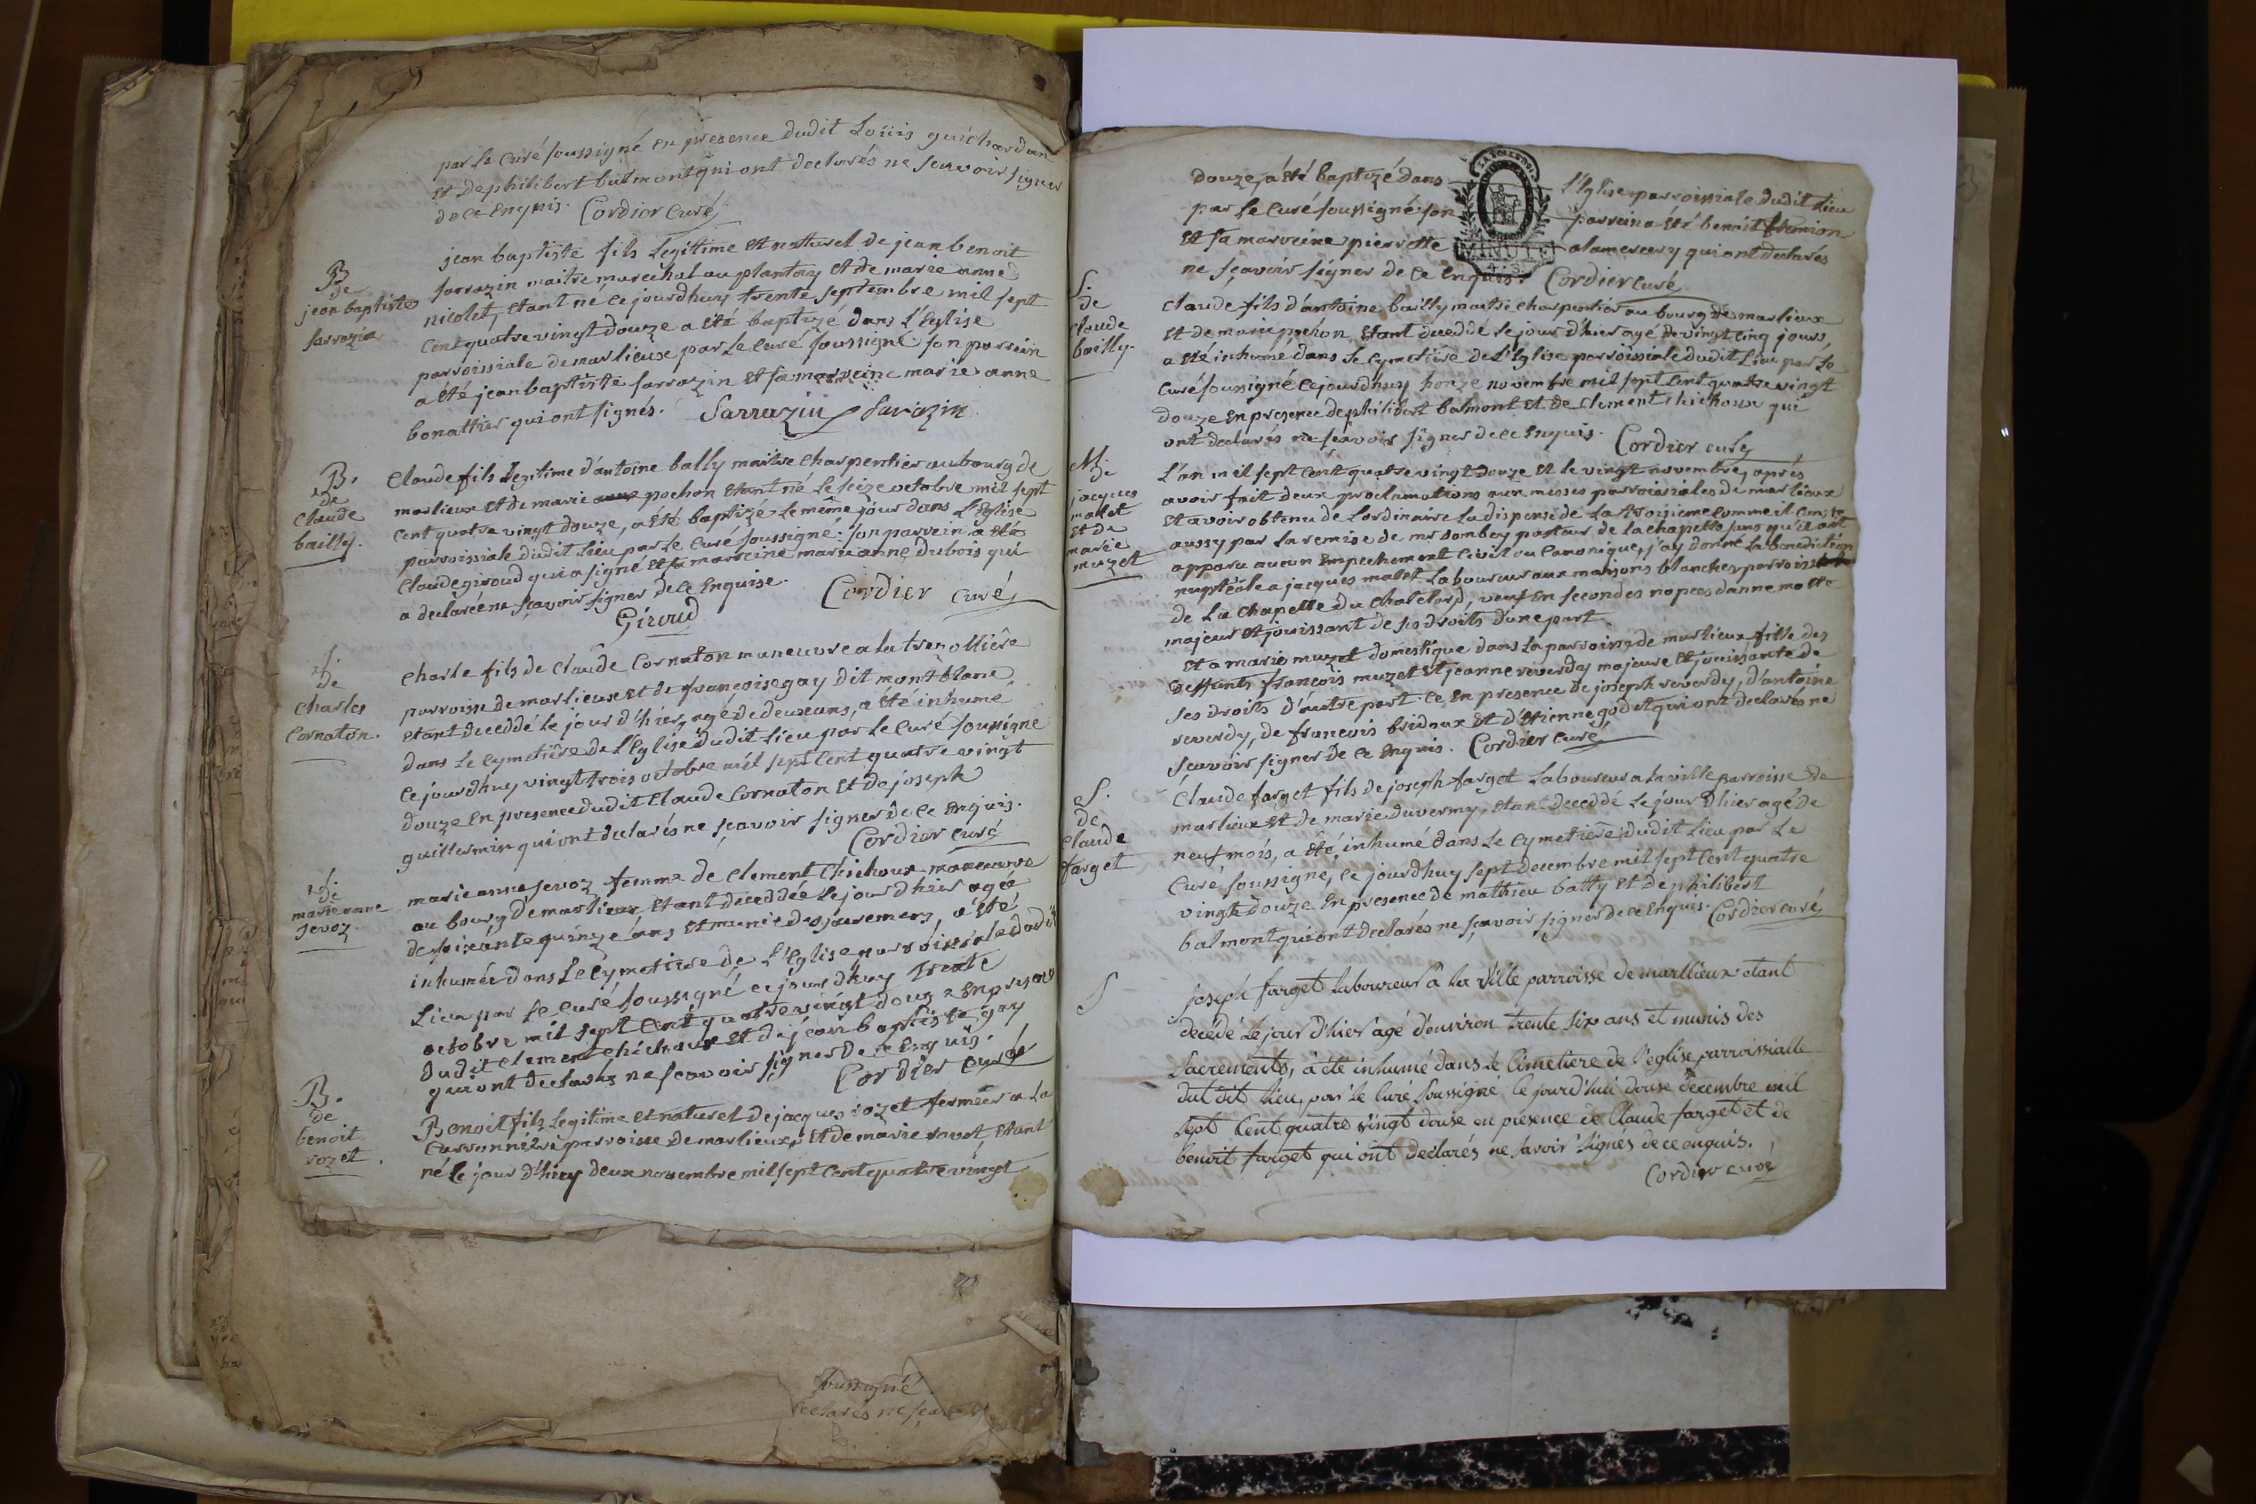 par le curé soussigné en presence dudit Loüis guichardan
et de philibert balmont qui ont declarés ne scavoir signer
de ce enquis. Cordier curé
B
de
jean baptiste
sarrazin
jean baptiste fils legitime et naturel de jean benoit
sarrazin maitre marechal au plantay et de marie anne
nicolet, etant né ce jourdhuy trente septembre mil sept
cent quatre vingt douze a été baptizé dans l'Eglise
parroissiale de marlieux par le curé soussigné son parrein
a été jean baptiste sarrazin et sa marreine marie anne
bonattier qui ont signés. Sarrazin Sarazin
B.
de
Claude
bailly.
Claude fils legitime d'antoine bally maitre charpentier au bourg de
marlieux et de marie pochon etant né le seize octobre mil sept
cent quatre vingt douze, a été baptizé le même jour dans l'Eglise
parroissiale dudit lieu par le curé soussigné: son parrein a été
Claude giroud qui a signé et sa marreine marie anne dubois qui
a declaré ne scavoir signer de ce Enquise. Cordier curé
Giroud
S.
de
Charles
Cornaton.
Charle fils de Claude Cornaton maneuvre a la tremollière
parroisse de marlieux et de françoise gay dit montblanc,
etant deceddé le jour d'hier, agé de deux ans, a été inhumé
dans le cymetière de l'Eglise dudit lieu par le curé soussigné
ce jourdhuy vingt trois octobre mil sept cent quatre vingt
douze en presence dudit Claude Cornaton et de joseph
guillermin qui ont declarés ne scavoir signer de ce Enquis.
Cordier curé
S.
de
marie anne
jevoz.
marie anne jevoz femme de Clement Chichoux maneuvre
au bourg de marlieux etant deceddée le jour d'hier agée
de soixante quinze ans et munie des sacremens, a été
inhumée dans le cymetiere de l'Eglise parroissiale dudit
Lieu par le curé soussigné ce jourdhuy trente
octobre mil sept cent quatre vingt douze en presence
dudit Clement chichoux et de jean baptiste gay
qui ont declarés ne scavoir signer de ce Enquis.
Cordier curé
B.
de
benoit
rozet.
Benoit fils legitime et naturel de jacques rozet fermier a la
parroisse de marlieux, et de marie ravat, etant
né le jour d'hier deux novembre mil sept cent quatre vingt
soussigné
declarés ne scavoir
douze, a été baptizé dans l'Eglise parroissiale dudit lieu
par le curé soussigné son parrein a été benoit
et sa marreine pierrette alamercery qui ont declarés
MINUTE
ne sçavoir signer de ce enquis. Cordier curé
S.
de
Claude
bailly.
Claude fils d'antoine bailly maitre charpentier au bourg de marlieux
et de marie pochon, etant deceddé le jour d'hier agé de vingt cinq jours,
a été inhumé dans le cymetière de l'Eglise parroissiale dudit lieu par le
curé soussigné ce jourdhuy honze novembre mil sept cent quatre vingt
douze en presence de philibert balmont et de Clement chichoux qui
ont declarés ne sçavoir signer de ce enquis. Cordier curé
M.
de
jacques
malet
et de
marie
muzet
L'an mil sept cent quatre vingt douze et le vingt novembre, aprés
avoir fait deux proclamations aux messes parroissiales de marlieux
et avoir obtenu de l'ordinaire la dispense de la troisieme comme il conste
aussy par la remise de mr dombey pasteur de la chapelle sans qu'il ait
apparu aucun empechement civil ou canonique, j'ay donné la benediction
nuptiale a jacques malet laboureur aux maisons blanches parroisse
de la chapelle du chatelard, veuf en secondes nopces danne
majeur et jouissant de ses droits d'une part
et a marie muzet domestique dans la parroisse de marlieux fille des
deffunts françois muzet et jeanne reverdy majeure et jouissante de
ses droits d'autre part. ce en presence de joseph reverdy, d'antoine
reverdy, de françois bridaux et d'étienne godet qui ont declarés ne
scavoir signer de ce enquis. Cordier curé
S.
de
Claude
farget
Claude farget fils de joseph farget laboureur a la ville parroisse de
marlieux et de marie duvermy, etant deceddé le jour d'hier agé de
neuf mois, a été inhumé dans le cymetière dudit lieu par le
curé soussigné, ce jourdhuy sept decembre mil sept cent quatre
vingt douze en presence de mathieu batty et de philibert
balmont qui ont declarés ne sçavoir signer de ce enquis. Cordier curé
S
joseph farget laboureur à la ville parroisse de marllieux etant
decédé le jour d'hier agé d'environ trente six ans et munis des
sacrements, à été inhumé dans le cimetiere de l'eglise parroissialle
dut dit lieu, par le curé soussigné ce jourd'hui douse decembre mil
sept cent quatre vingt douse en présence de Claude farget et de
benoit farget qui ont declarés ne savoir signés de ce enquis.
Cordier curé